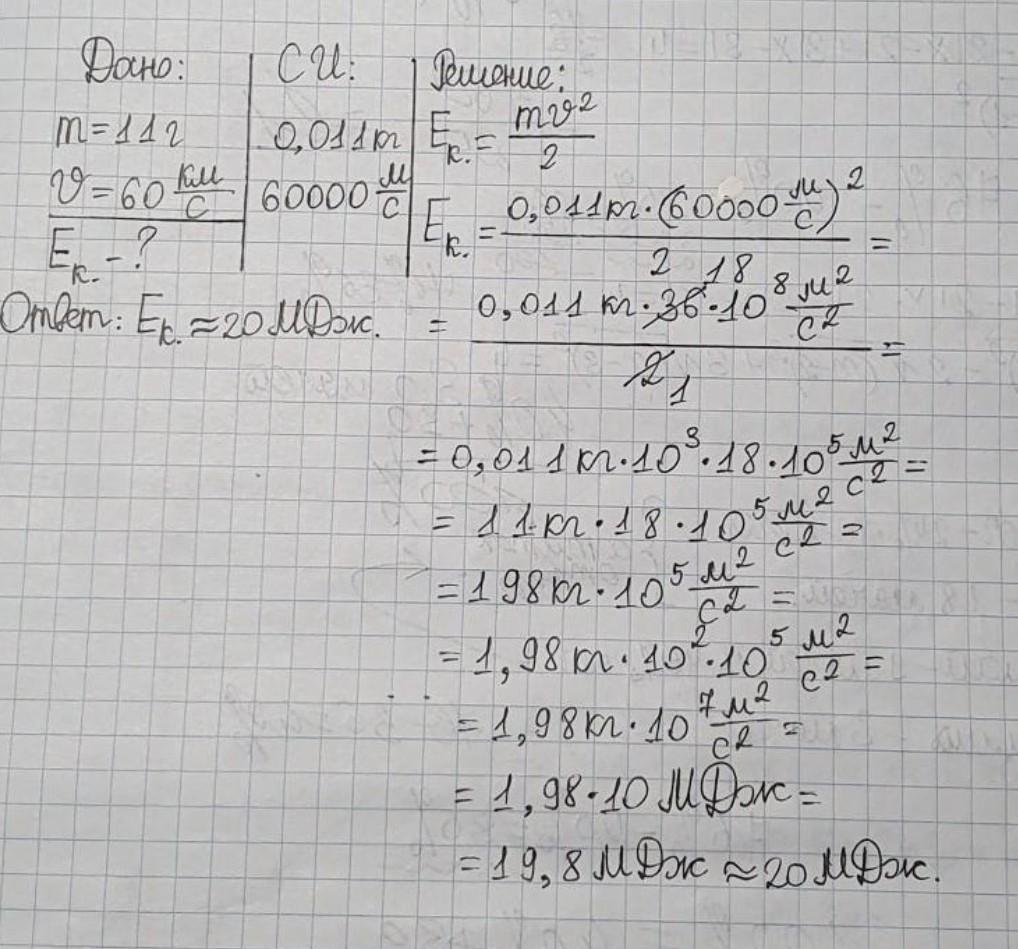 Дано:
m=11г
𝜗=60 км/с
Eк. - ?
СИ:
0,011кг
60000 м/с
Решение:
Eк. = m𝜗²/2
Eк. = 0,011кг·(60000 м/с)²/2 =
= 0,011 кг·36·10⁸ м²/с² / 2 =
18
1
= 0,011кг·10³·18·10⁵ м²/с² =
= 11кг·18·10⁵ м²/с² =
= 198кг·10⁵ м²/с² =
= 1,98кг·10²·10⁵ м²/с² =
= 1,98кг·10⁷ м²/с² =
= 1,98·10 МДж =
= 19,8 МДж ≈ 20 МДж.
Ответ: Eк. ≈ 20 МДж.